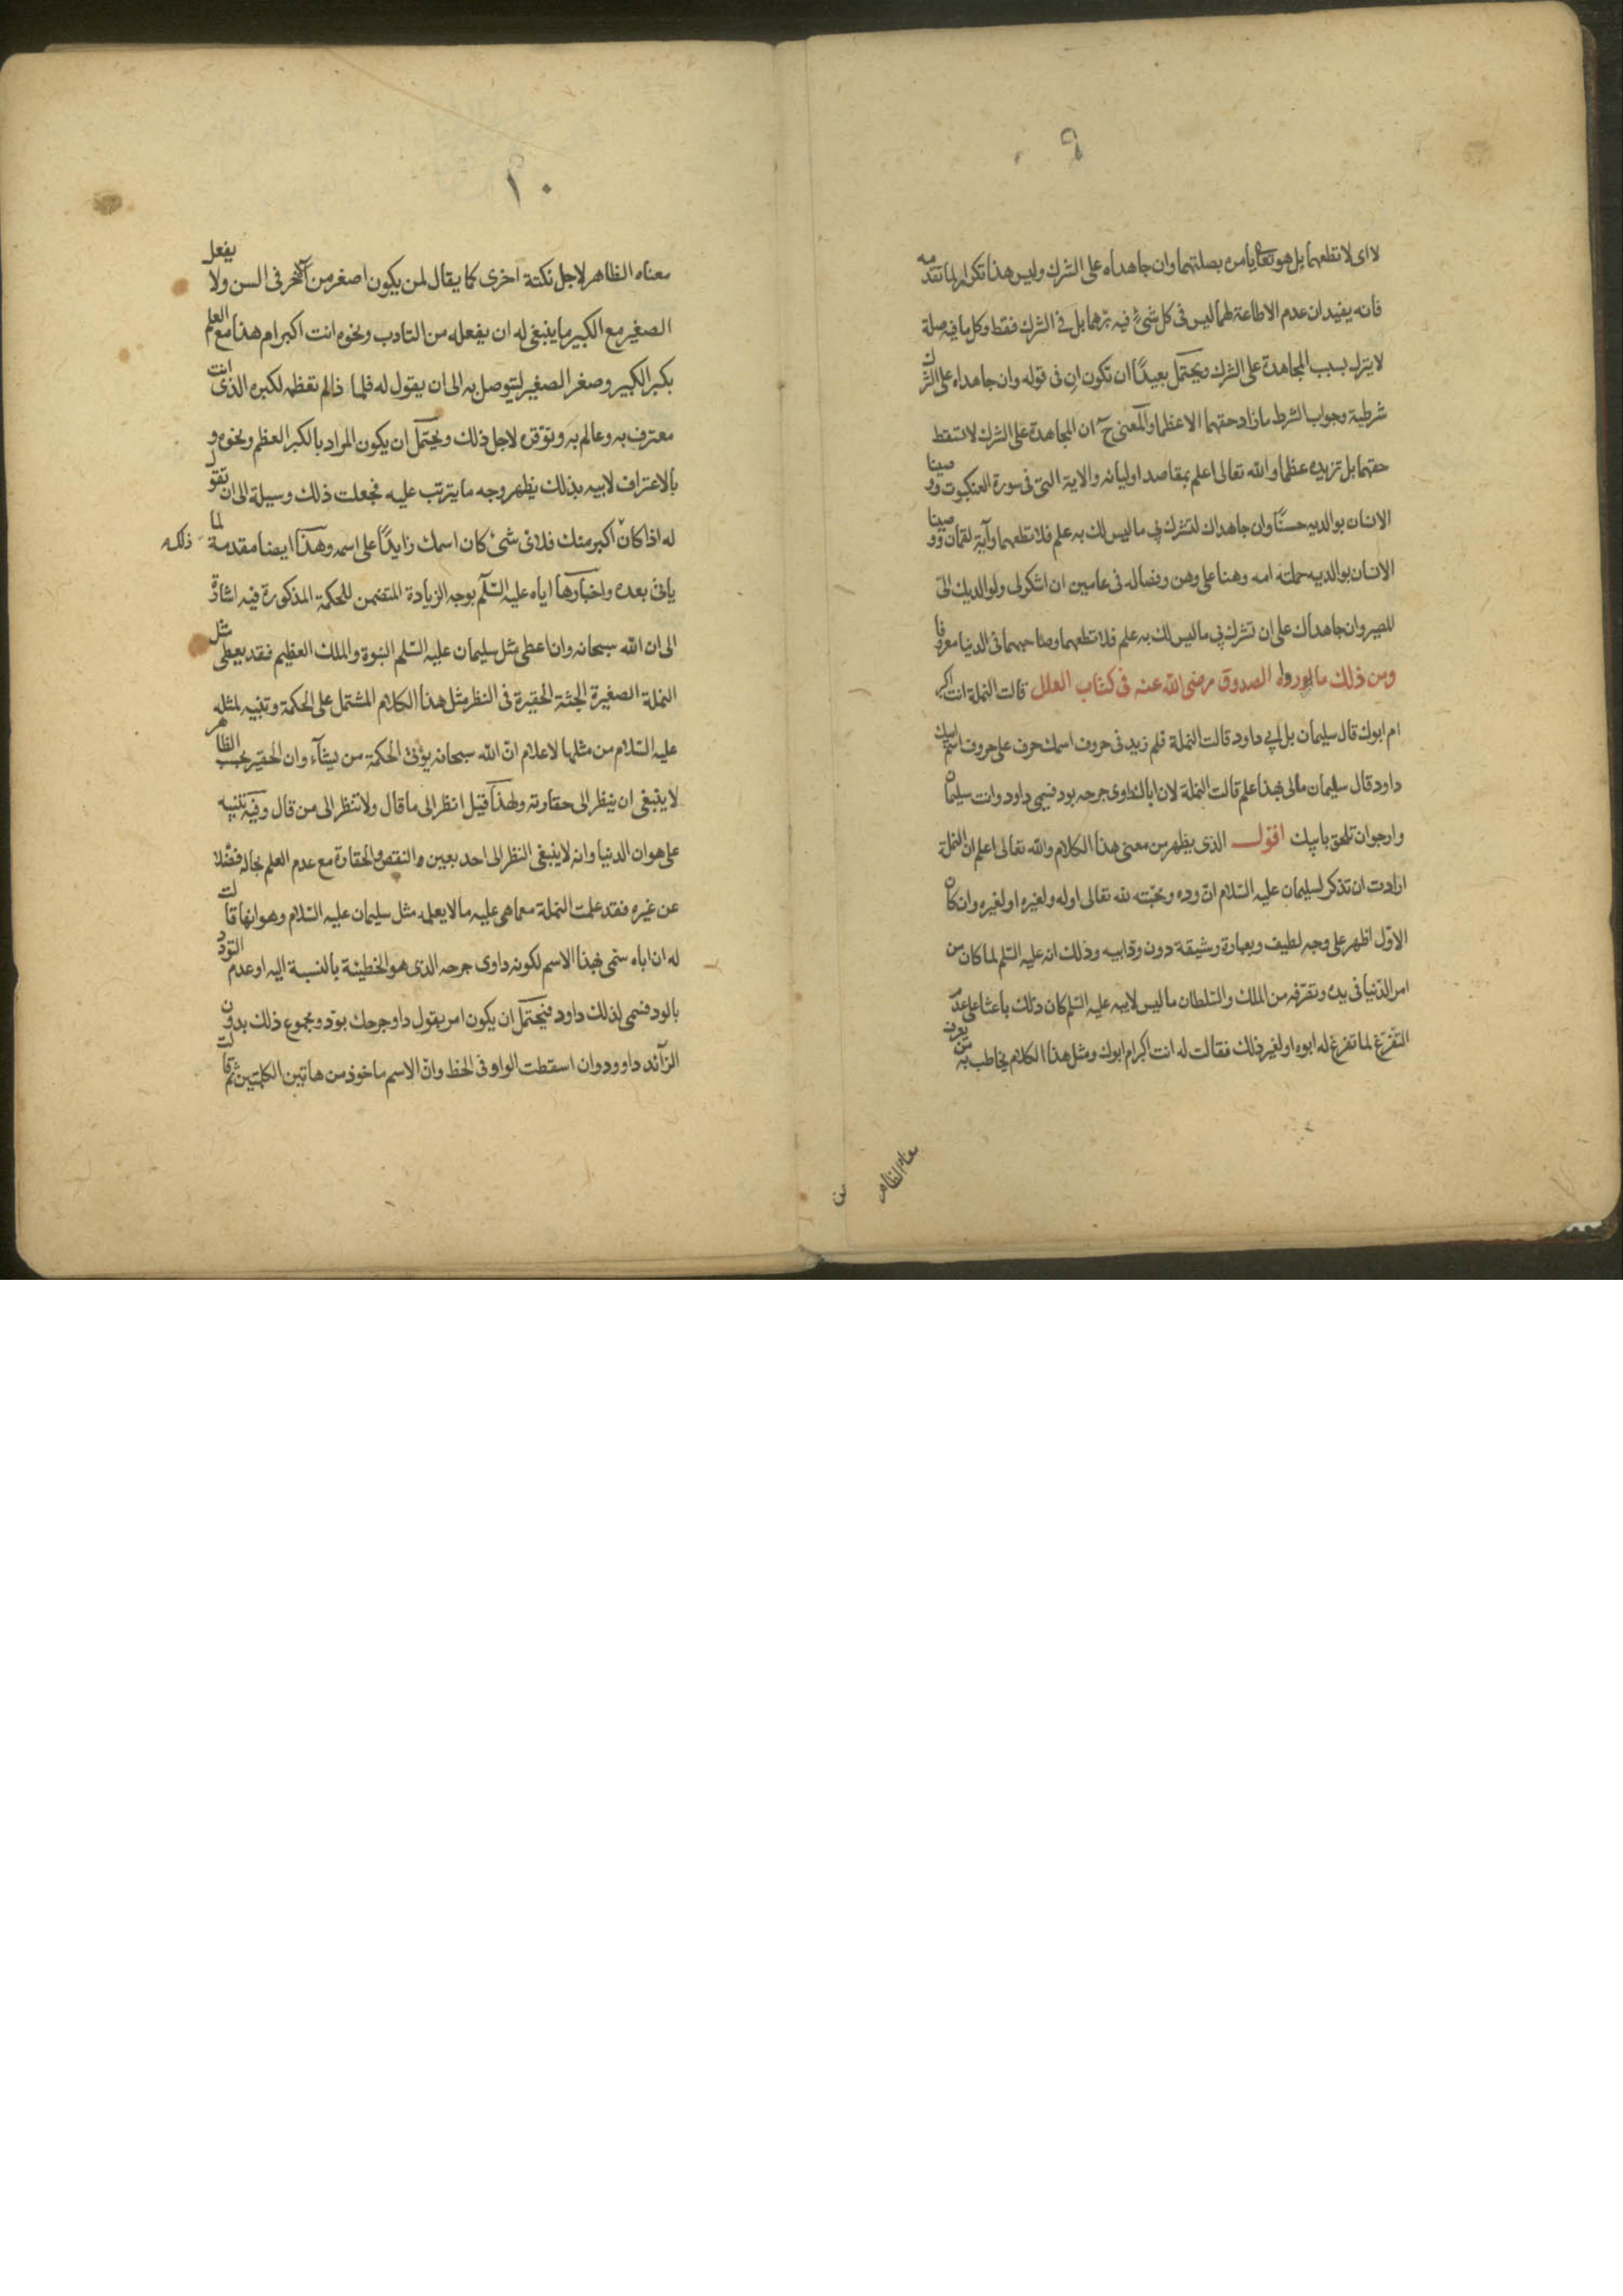 ٩
لا اى لا تطعهما بل هو تعالى يامره بصلتهما وان جاهداه على الشرك وليس هذا تكرارا لما تقدمه
فانه يفيد ان عدم الاطاعة لهما ليس فى كل شئ فيه برهما بل فى الشرك فقط وكل ما فيه صلة
لا يترك بسبب المجاهدة على الشرك ويحتمل بعيدًا ان تكون ان فى قوله وان جاهداه على الشرك
شرطية وجواب الشرط ما زاد حقهما الا عظما والمعنى ح ان المجاهدة على الشرك لا تسقط
حقهما بل تزيده عظما والله تعالى اعلم بمقاصد اوليائه والاية التى فى سورة العنكبوت ووصينا
الانسان بوالديه حسنًا وان جاهداك لتشرك بى ما ليس لك به علم فلا تطعهما وآية لقمان ووصينا
الانسان بوالديه حملته امه وهنا على وهن وفصاله فى عامين ان اشكر لى ولوالديك الىّ
المصير وان جاهداك على ان تشرك بى ما ليس لك به علم فلا تطعهما وصاحبهما فى الدنيا معروفا
ومن ذلك ما الصدوق رضى الله عنه فى كتاب العلل قالت النملة انت اكبر
ام ابوك قال سليمان بل ابى داود قالت النملة فلم زيد فى حروف اسمك حرف على حروف اسم ابيك
داود قال سليمان مالى بهذا علم قالت النملة لان اباك داوى جرحه بود فسمى داود وانت سليمان
وارجو ان تلحق بابيك اقول الذى يظهر من معنى هذا الكلام والله تعالى اعلم ان النملة
ارادت ان تذكر لسليمان عليه السلام ان وده ومحبته لله تعالى او له ولغيره او لغيره وان كان
الاول اظهر على وجه لطيف وبعبارة رشيقة دون ود ابيه وذلك انه عليه السلم لما كان من
امر الدنيا فى يده وتصرفه من الملك والسلطان ما ليس لابيه عليه السلم كان ذلك باعثا على عدم
التفرغ لما تفرغ له ابوه او لغير ذلك فقالت له انت اكبر ام ابوك ومثل هذا الكلام يخاطب به من
معناه الظاهر
١٠
معناه الظاهر لاجل نكتة اخرى كما يقال لمن يكون اصغر من الآخر فى السن ولا يفعل
الصغير مع الكبير ما ينبغى له ان يفعله من التادب ونحوه انت اكبر ام هذا مع العلم
بكبر الكبير وصغر الصغير ليتوصل به الى ان يقول له فلماذا لم تعظمه لكبره الذى انت
معترف به وعالم به وتوقره لاجل ذلك ويحتمل ان يكون المراد بالكبر العظم ونحوه و
بالاعتراف لابيه بذلك يظهر وجه ما يترتب عليه فجعلت ذلك وسيلة الى ان تقول
له اذا كان اكبر منك فلاى شئ كان اسمك زايدًا على اسمه وهذا ايضا مقدمة لما ذلك
ياتى بعده واخبارها اياه عليه السلم بوجه الزيادة المتضمن للحكمة المذكورة فيه اشارة
الى ان الله سبحانه وان اعطى مثل سليمان عليه السلم النبوة والملك العظيم فقد يعطى مثل
النملة الصغيرة الجثة الحقيرة فى النظر مثل هذا الكلام المشتمل على الحكمة وتنبيه لمثله
عليه السلام من مثلها لاعلام ان الله سبحانه يؤتى الحكمة من يشآء وان الحقير بحسب الظاهر
لا ينبغى ان ينظر الى حقارته ولهذا قيل انظر الى ما قال ولا تنظر الى من قال وفيه تنبيه
على هوان الدنيا وانه لا ينبغى النظر الى احد بعين النقص والحقارة مع عدم العلم بحاله فضلا
عن غيره فقد علمت النملة مع ما هى عليه ما لا يعلمه مثل سليمان عليه السلام وهو انها قالت
له ان اباه سمى بهذا الاسم لكونه داوى جرحه الذى هو الخطيئة بالنسبة اليه او عدم التودد
بالود فسمى لذلك داود فيحتمل ان يكون امر يقول داو جرحك بود ومجموع ذلك بدون
الزآئد داو ود وان اسقطت الواو فى الخط وان الاسم ماخوذ من هاتين الكلمتين ثم قالت